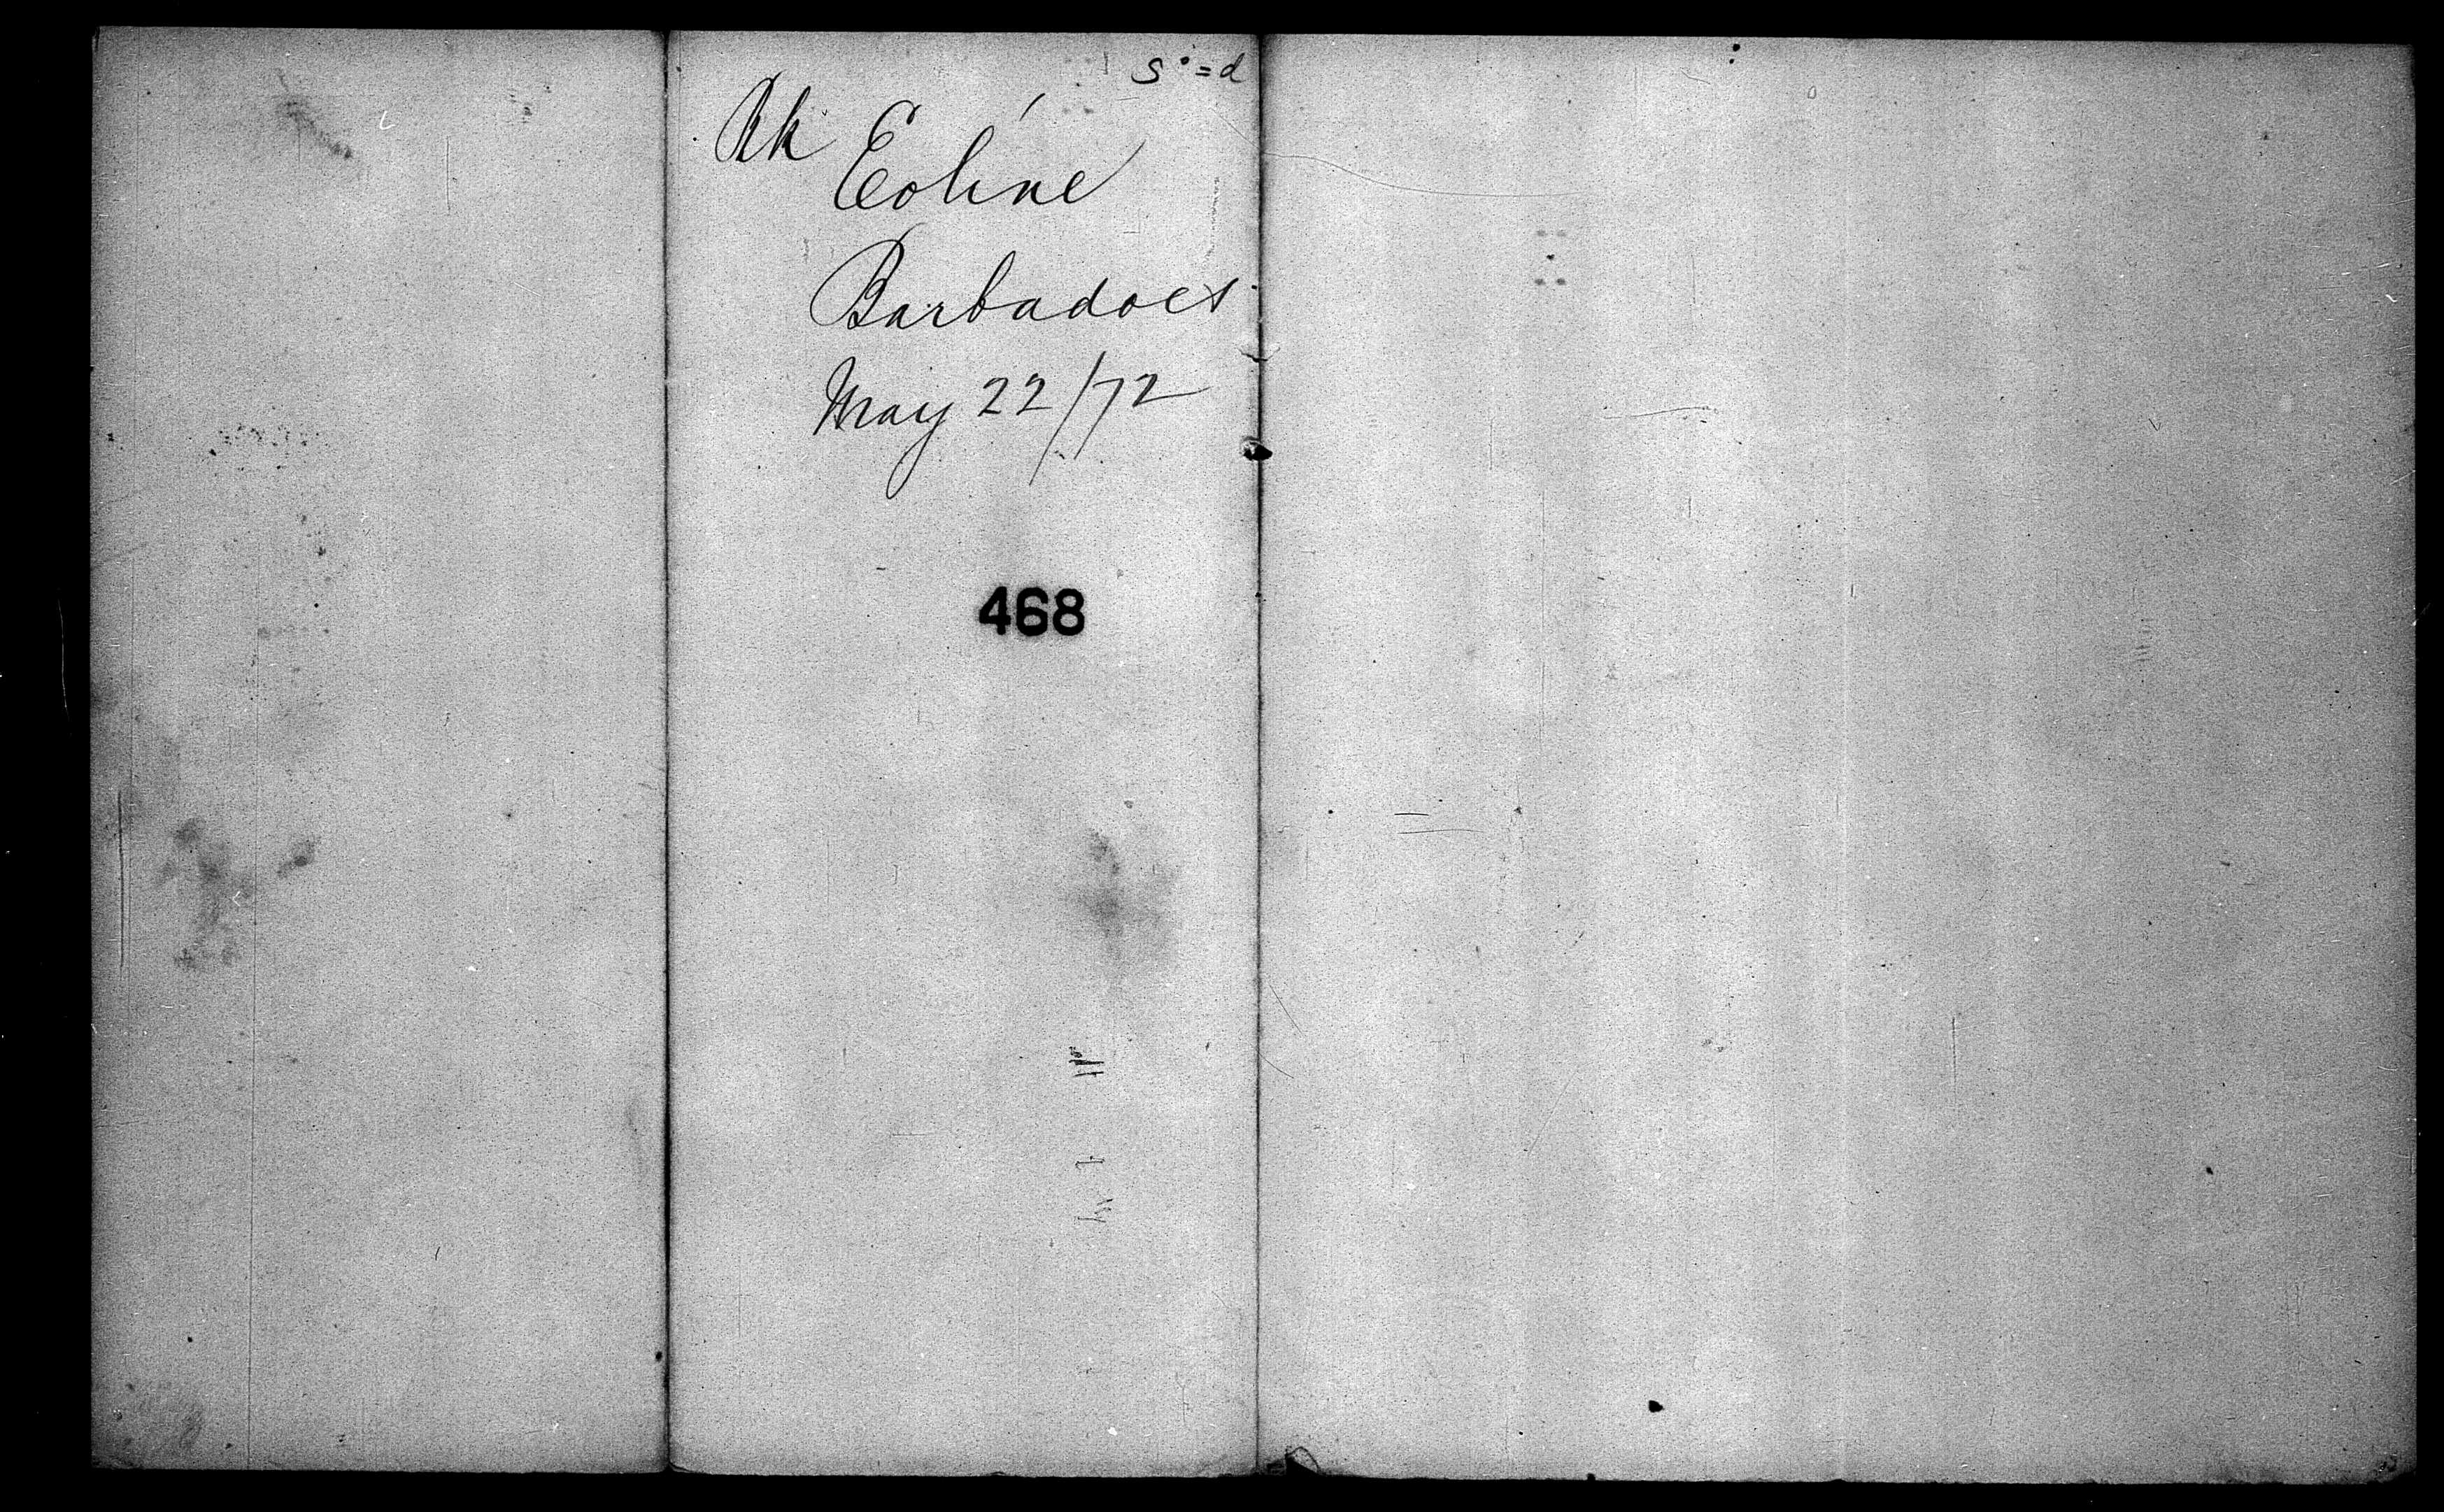 Bk Eoline
Barbadoes
May 22/72
468